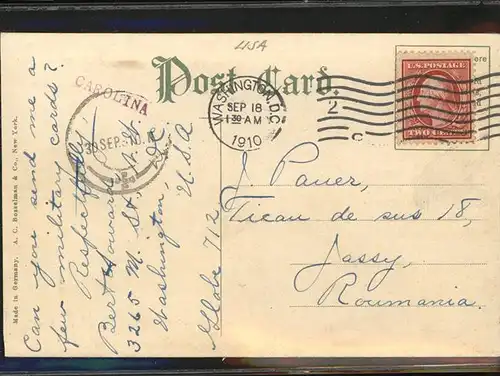 USA
Post Card.
CAROLINA
WASHINGTON, D.C.
SEP 18
1910
2
U.S. POSTAGE
TWO CENTS
Made in Germany. A. C. Bosselman & Co., New York.
Can you send me a
few military cards?
Respectfully
Bert Howard
3265 M. St., N. W.
Washington, D.C.
U. S. A
Globe 712
J. Pauer,
Ticau de sus 18,
Jassy,
Roumania.